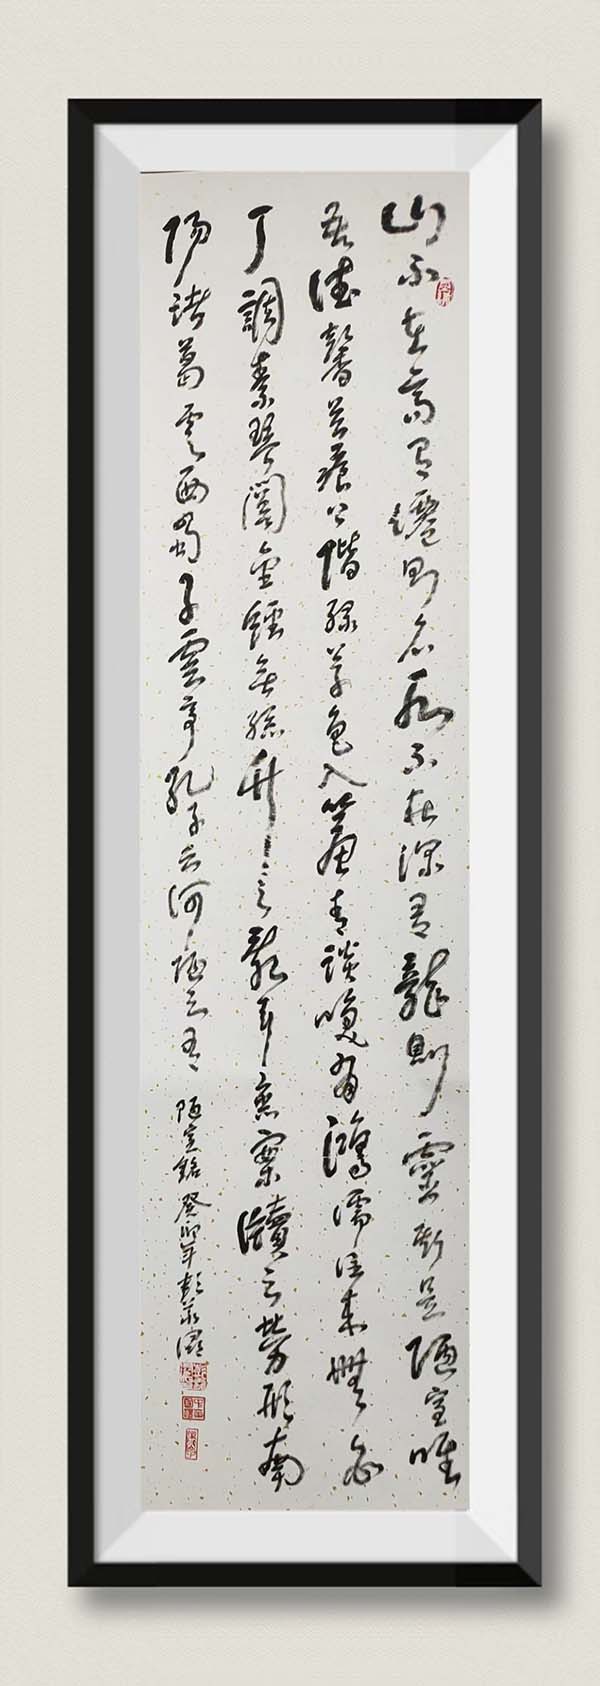 山不在高有僊則名水不在深有龍則靈斯是陋室唯
吾德馨苔痕上階綠草色入簾青談咲有鴻儒往來無白
丁調素琴閱金經無絲竹之亂耳無案牘之勞形南
陽諸葛廬西蜀子雲亭孔子云何陋之有 陋室銘 癸卯年彭